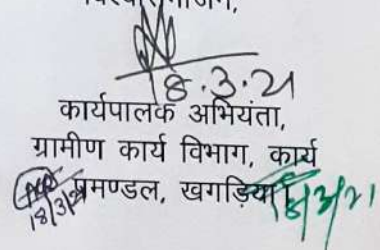 18.3.21
कार्यपालक अभियंता,
ग्रामीण कार्य विभाग, कार्य
प्रमण्डल, खगड़िया।
18/3/21
18/3/21